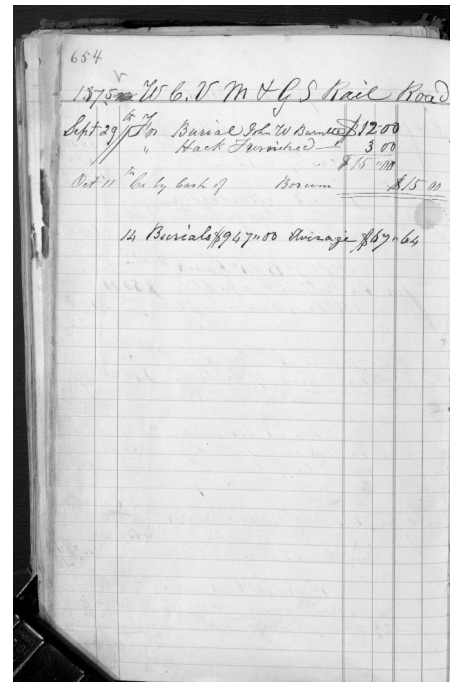 654
1875 W C. V M & G S Rail Road
Sept 29 For Burial John W Burnette $12.00
" Hack Furnished — 3 00
$15 "00
Oct 11 Cr by Cash of Borum $15 00
14 Burials $947"00 Avirage $67"64